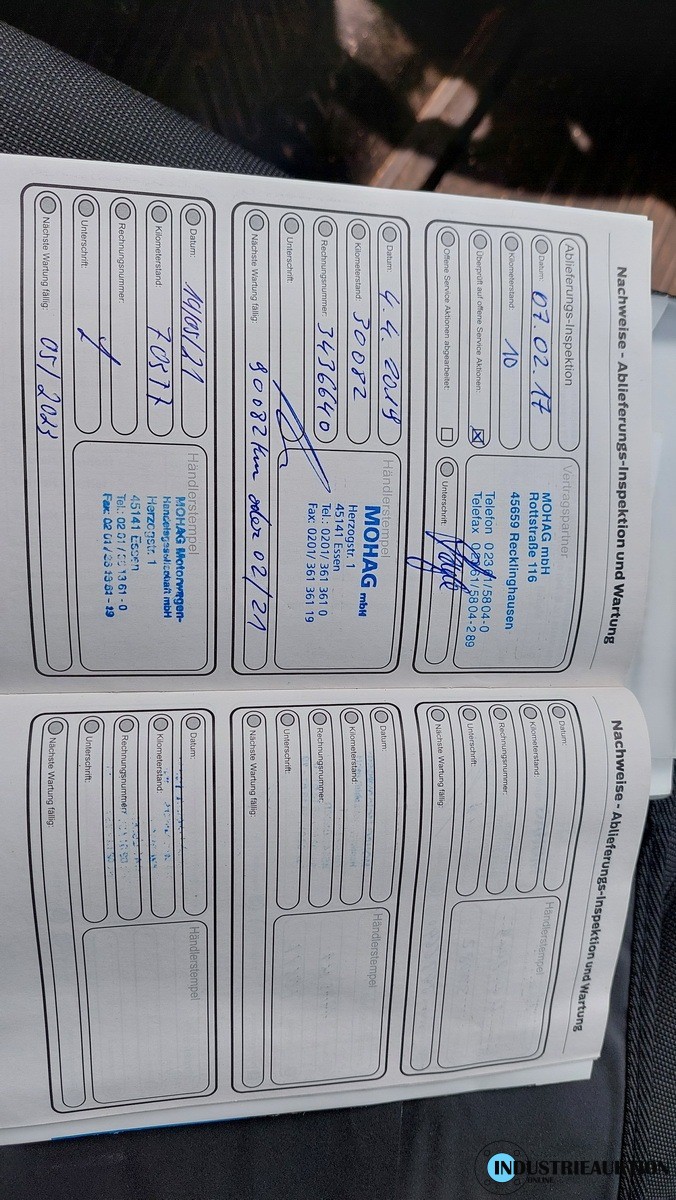 Nachweise - Ablieferungs-Inspektion und Wartung
Ablieferungs-Inspektion
Datum: 07.02.17
Kilometerstand: 10
Überprüft auf offene Service Aktionen: ☒
Offene Service Aktionen abgearbeitet: ☐
Vertragspartner
MOHAG mbH
Rottstraße 116
45659 Recklinghausen
Telefon 02361/5804-0
Telefax 02361/5804-289
Unterschrift:
Datum: 4.4.2019
Kilometerstand: 30082
Rechnungsnummer: 3436640
Unterschrift:
Nächste Wartung fällig: 90082km oder 02/21
Händlerstempel
MOHAG mbH
Herzogstr. 1
45141 Essen
Tel.: 0201/ 361 361 0
Fax: 0201/ 361 361 19
Datum: 19/05/21
Kilometerstand: 70577
Rechnungsnummer:
Unterschrift:
Nächste Wartung fällig: 05/2023
Händlerstempel
MOHAG Motorwagen-
Handelsgesellschaft mbH
Herzogstr. 1
45141 Essen
Tel.: 02 01 / 36 13 61 - 0
Fax: 02 01 / 36 13 61 - 19
Nachweise - Ablieferungs-Inspektion und Wartung
Datum:
Kilometerstand:
Rechnungsnummer:
Unterschrift:
Nächste Wartung fällig:
Händlerstempel
Datum:
Kilometerstand:
Rechnungsnummer:
Unterschrift:
Nächste Wartung fällig:
Händlerstempel
Datum:
Kilometerstand:
Rechnungsnummer:
Unterschrift:
Nächste Wartung fällig:
Händlerstempel
INDUSTRIEAUKTION
ONLINE